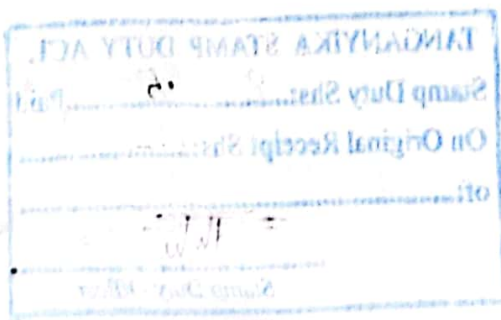 TANGANYIKA STAMP DUTY ACT.
Stamp Duty Shs: Paid
On Original Receipt Shs:
of:
Stamp Duty Officer